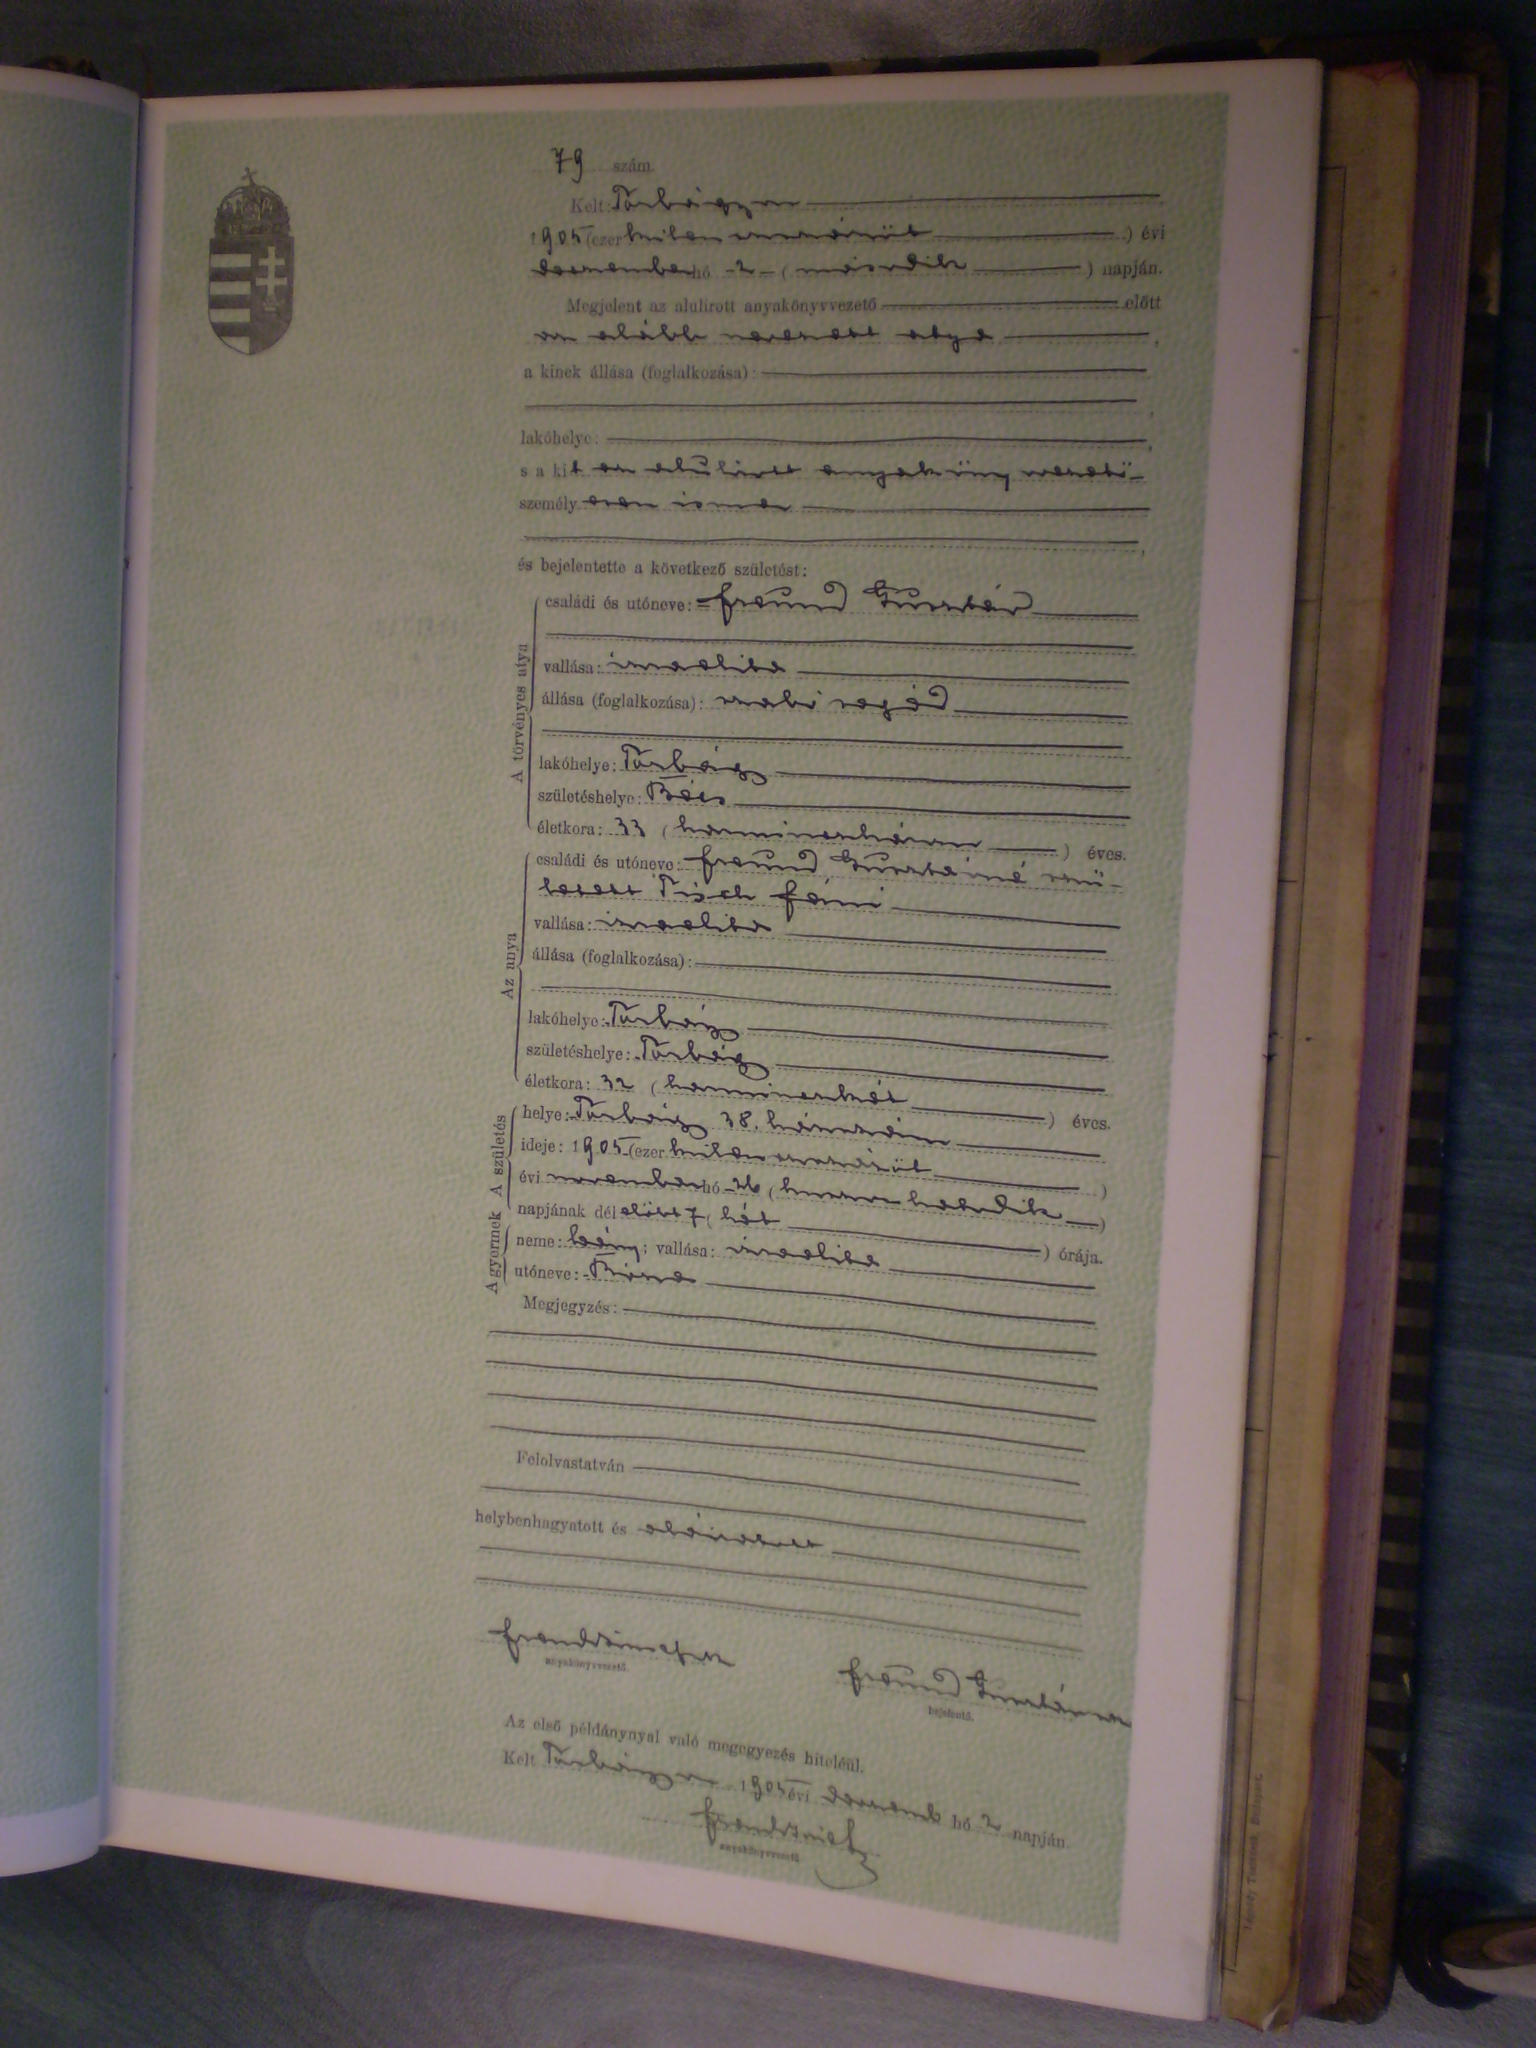 79 szám
Kelt: Torbágyon
1905 (ezerkilenczszázöt) évi
deczember hó -2- (második) napján.
Megjelent az alulirott anyakönyvvezető előtt
az alább nevezett atya,
a kinek állása (foglalkozása):
lakóhelye:
s a kit az alulirott anyakönyvvezető
személyesen ismer
és bejelentette a következő születést:
A törvényes atya
családi és utóneve: Freund Gusztáv
vallása: izraelita
állása (foglalkozása): szabó segéd
lakóhelye: Torbágy
születéshelye: Bécs
életkora: 33 (harminczhárom) éves.
Az anya
családi és utóneve: Freund Gusztávné szü-
letett Tisch Fáni
vallása: izraelita
állása (foglalkozása):
lakóhelye: Torbágy
születéshelye: Torbágy
életkora: 32 (harminczkét) éves.
A születés
helye: Torbágy 38. házszám
ideje: 1905 (ezerkilenczszázöt)
évi november hó 26 (huszonhatodik)
napjának délelőtt 7 (hét) órája.
A gyermek
neme: leány; vallása: izraelita
utóneve:
Megjegyzés:
Felolvastatván
helybenhagyatott és aláiratott
anyakönyvvezető.
Freund Gusztáv
bejelentő.
Az első példánynyal való megegyezés hiteléül.
Kelt Torbágyon 1905 évi deczemb hó 2 napján
anyakönyvvezető